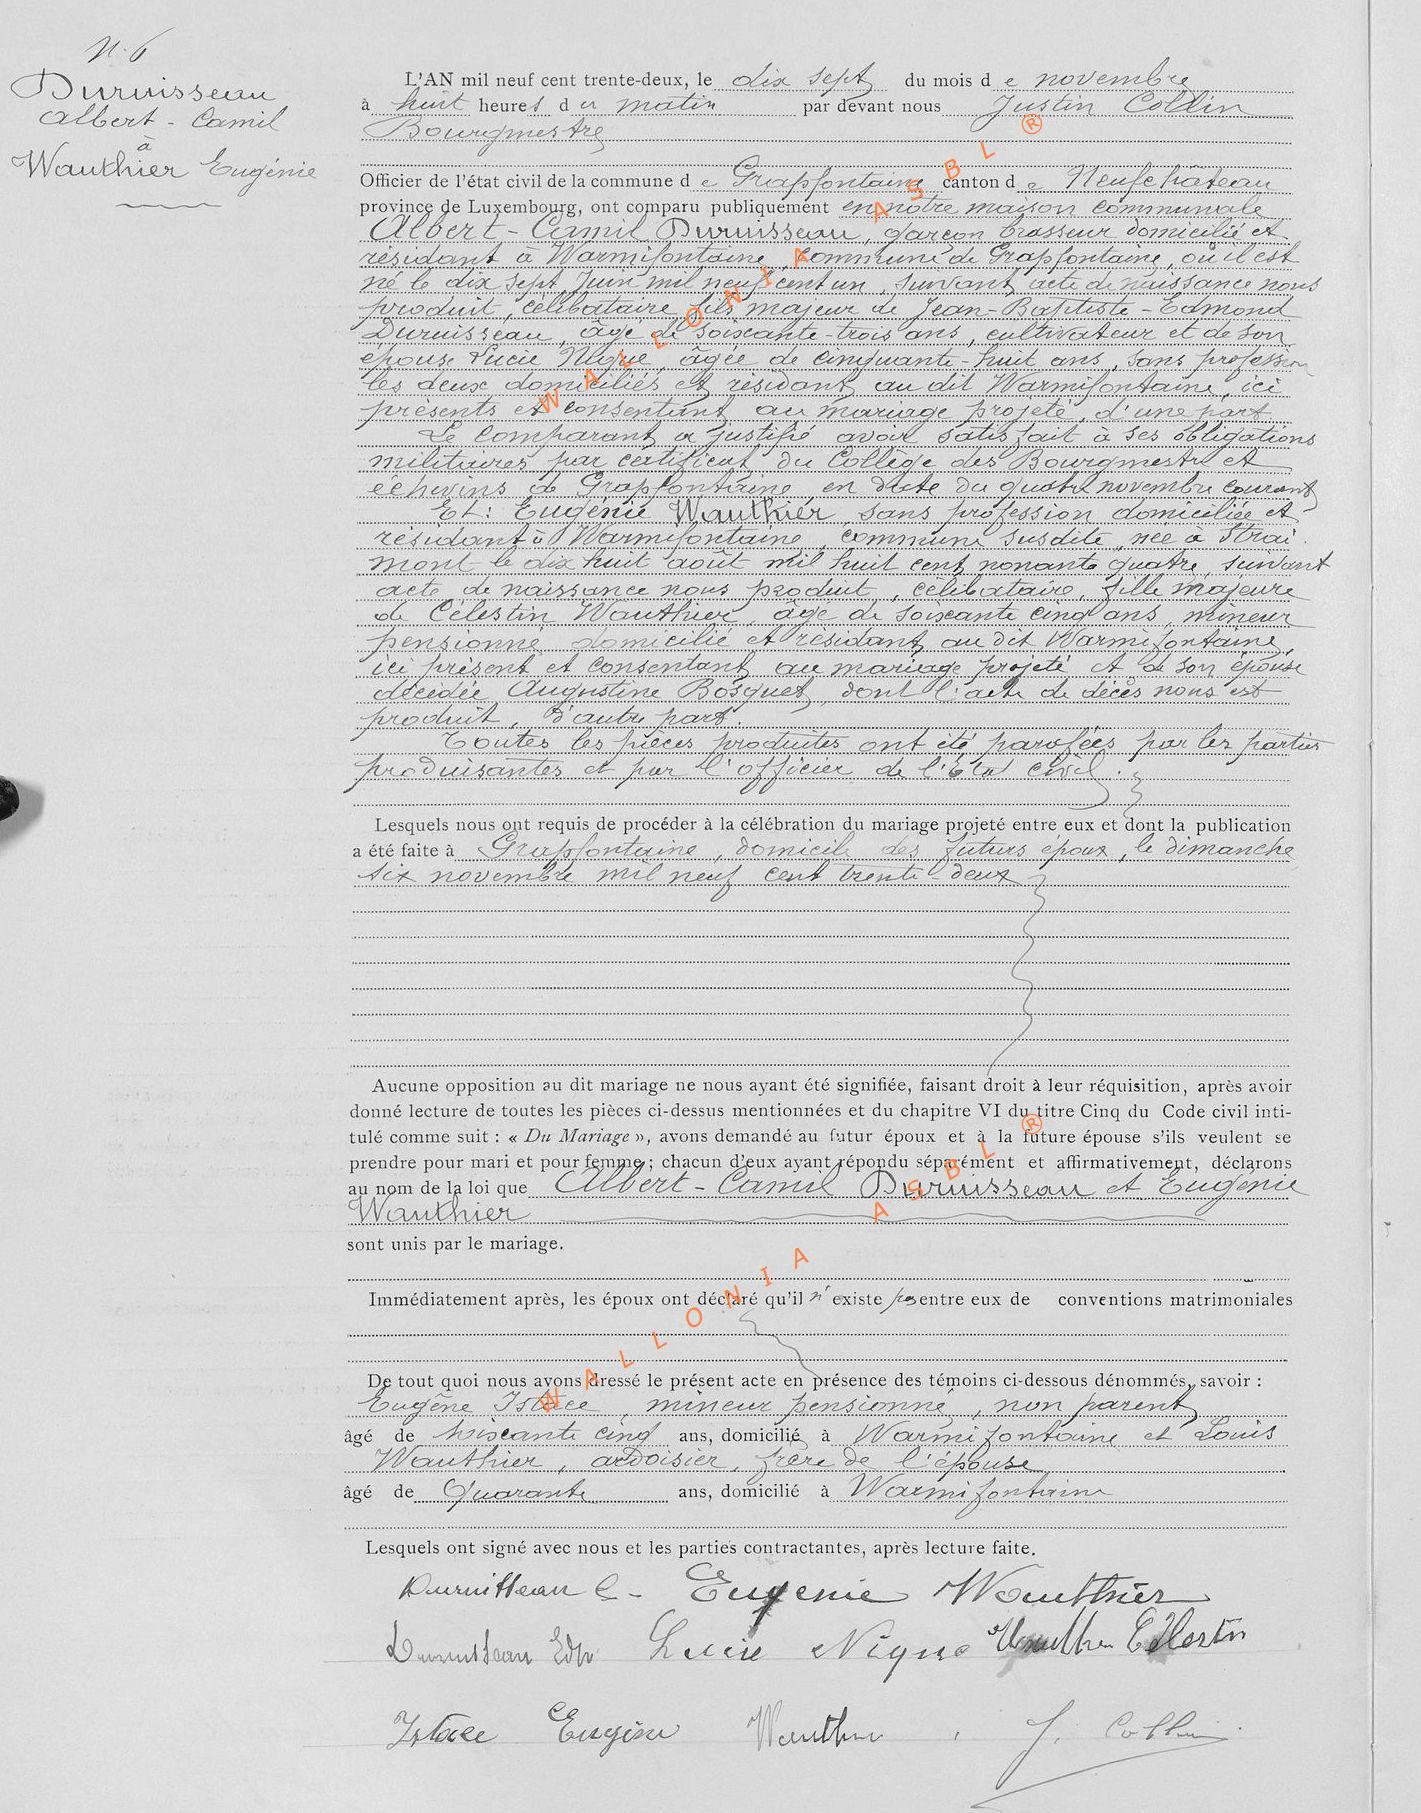 N. 6
Duruisseau
Albert - Camil
à
Wauthier Eugénie
L'AN mil neuf cent trente-deux, le dix sept du mois d e novembre
à huit heures du matin par devant nous Justin Collin
Bourgmestre
Officier de l'état civil de la commune d e Grapfontaine canton d e Neufchâteau
province de Luxembourg, ont comparu publiquement en notre maison communale
Albert - Camil Duruisseau, garçon brasseur domicilié et
résidant à Warmifontaine, commune de Grapfontaine, où il est
né le dix sept Juin mil neuf cent un, suivant acte de naissance nous
produit, célibataire, fils majeur de Jean-Baptiste-Edmond
Duruisseau, âgé de soixante-trois ans, cultivateur et de son
épouse Lucie Nique, âgée de cinquante-huit ans, sans profession
les deux domiciliés et résidant au dit Warmifontaine, ici
présents et consentant au mariage projeté, d'une part
Le comparant a justifié avoir satisfait à ses obligations
militaires par certificat du Collège des Bourgmestre et
échevins de Grapfontaine en date du quatre novembre courant
Et: Eugénie Wauthier sans profession domiciliée et
résidant à Warmifontaine, commune susdite, née à Strai-
mont le dix huit août mil huit cent nonante quatre, suivant
acte de naissance nous produit, célibataire, fille majeure
de Célestin Wauthier, âgé de soixante cinq ans, mineur
pensionné domicilié et résidant au dit Warmifontaine,
ici présent et consentant au mariage projeté et de son épouse
décédée Augustine Bosquet, dont l'acte de décès nous est
produit, d'autre part.
Toutes les pièces produites ont été parafées par les parties
produisantes et par l'officier de l'État civil.
Lesquels nous ont requis de procéder à la célébration du mariage projeté entre eux et dont la publication
a été faite à Grapfontaine, domicile des futurs époux, le dimanche
six novembre mil neuf cent trente-deux
Aucune opposition au dit mariage ne nous ayant été signifiée, faisant droit à leur réquisition, après avoir
donné lecture de toutes les pièces ci-dessus mentionnées et du chapitre VI du titre Cinq du Code civil inti-
tulé comme suit : « Du Mariage », avons demandé au futur époux et à la future épouse s'ils veulent se
prendre pour mari et pour femme ; chacun d'eux ayant répondu séparément et affirmativement, déclarons
au nom de la loi que Albert - Camil Duruisseau et Eugénie
Wauthier
sont unis par le mariage.
Immédiatement après, les époux ont déclaré qu'il n'existe pas entre eux de conventions matrimoniales
De tout quoi nous avons dressé le présent acte en présence des témoins ci-dessous dénommés, savoir :
Eugène Istace, mineur pensionné, non parent
âgé de soixante cinq ans, domicilié à Warmifontaine et Louis
Wauthier, ardoisier, frère de l'épouse
âgé de Quarante ans, domicilié à Warmifontaine
Lesquels ont signé avec nous et les parties contractantes, après lecture faite.
Duruisseau C - Eugenie Wauthier
Duruisseau Edm Lucie Nique Wauthier Célestin
Istace Eugène Wauthier J. Collin
WALLONIA ASBL ®
WALLONIA ASBL ®